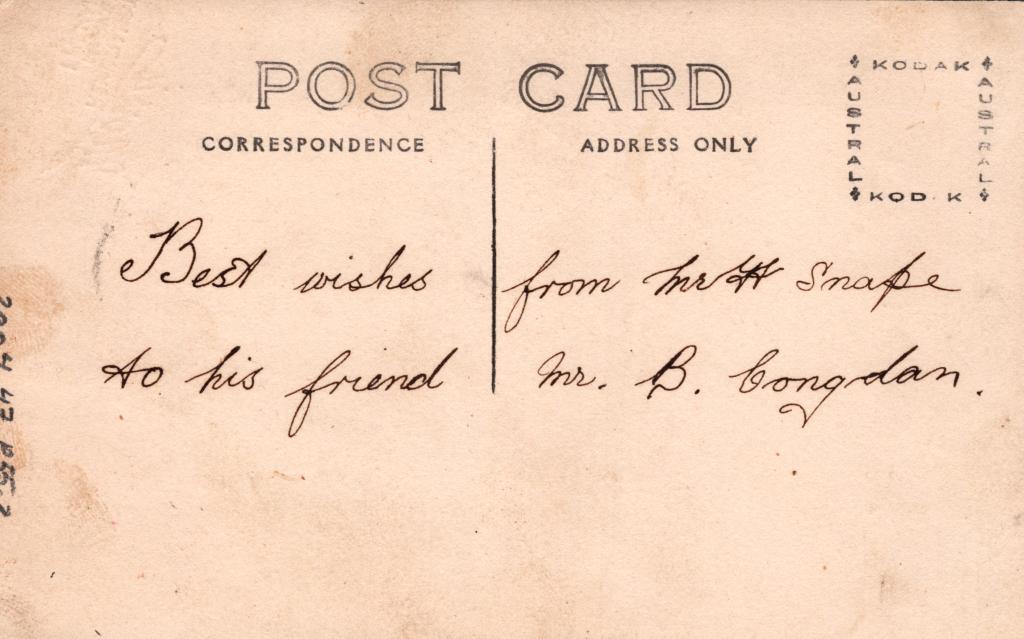 POST CARD
CORRESPONDENCE
ADDRESS ONLY
KODAK
AUSTRAL
AUSTRAL
KOD K
Best wishes from Mr H Snape
to his friend Mr. B. Congdan.